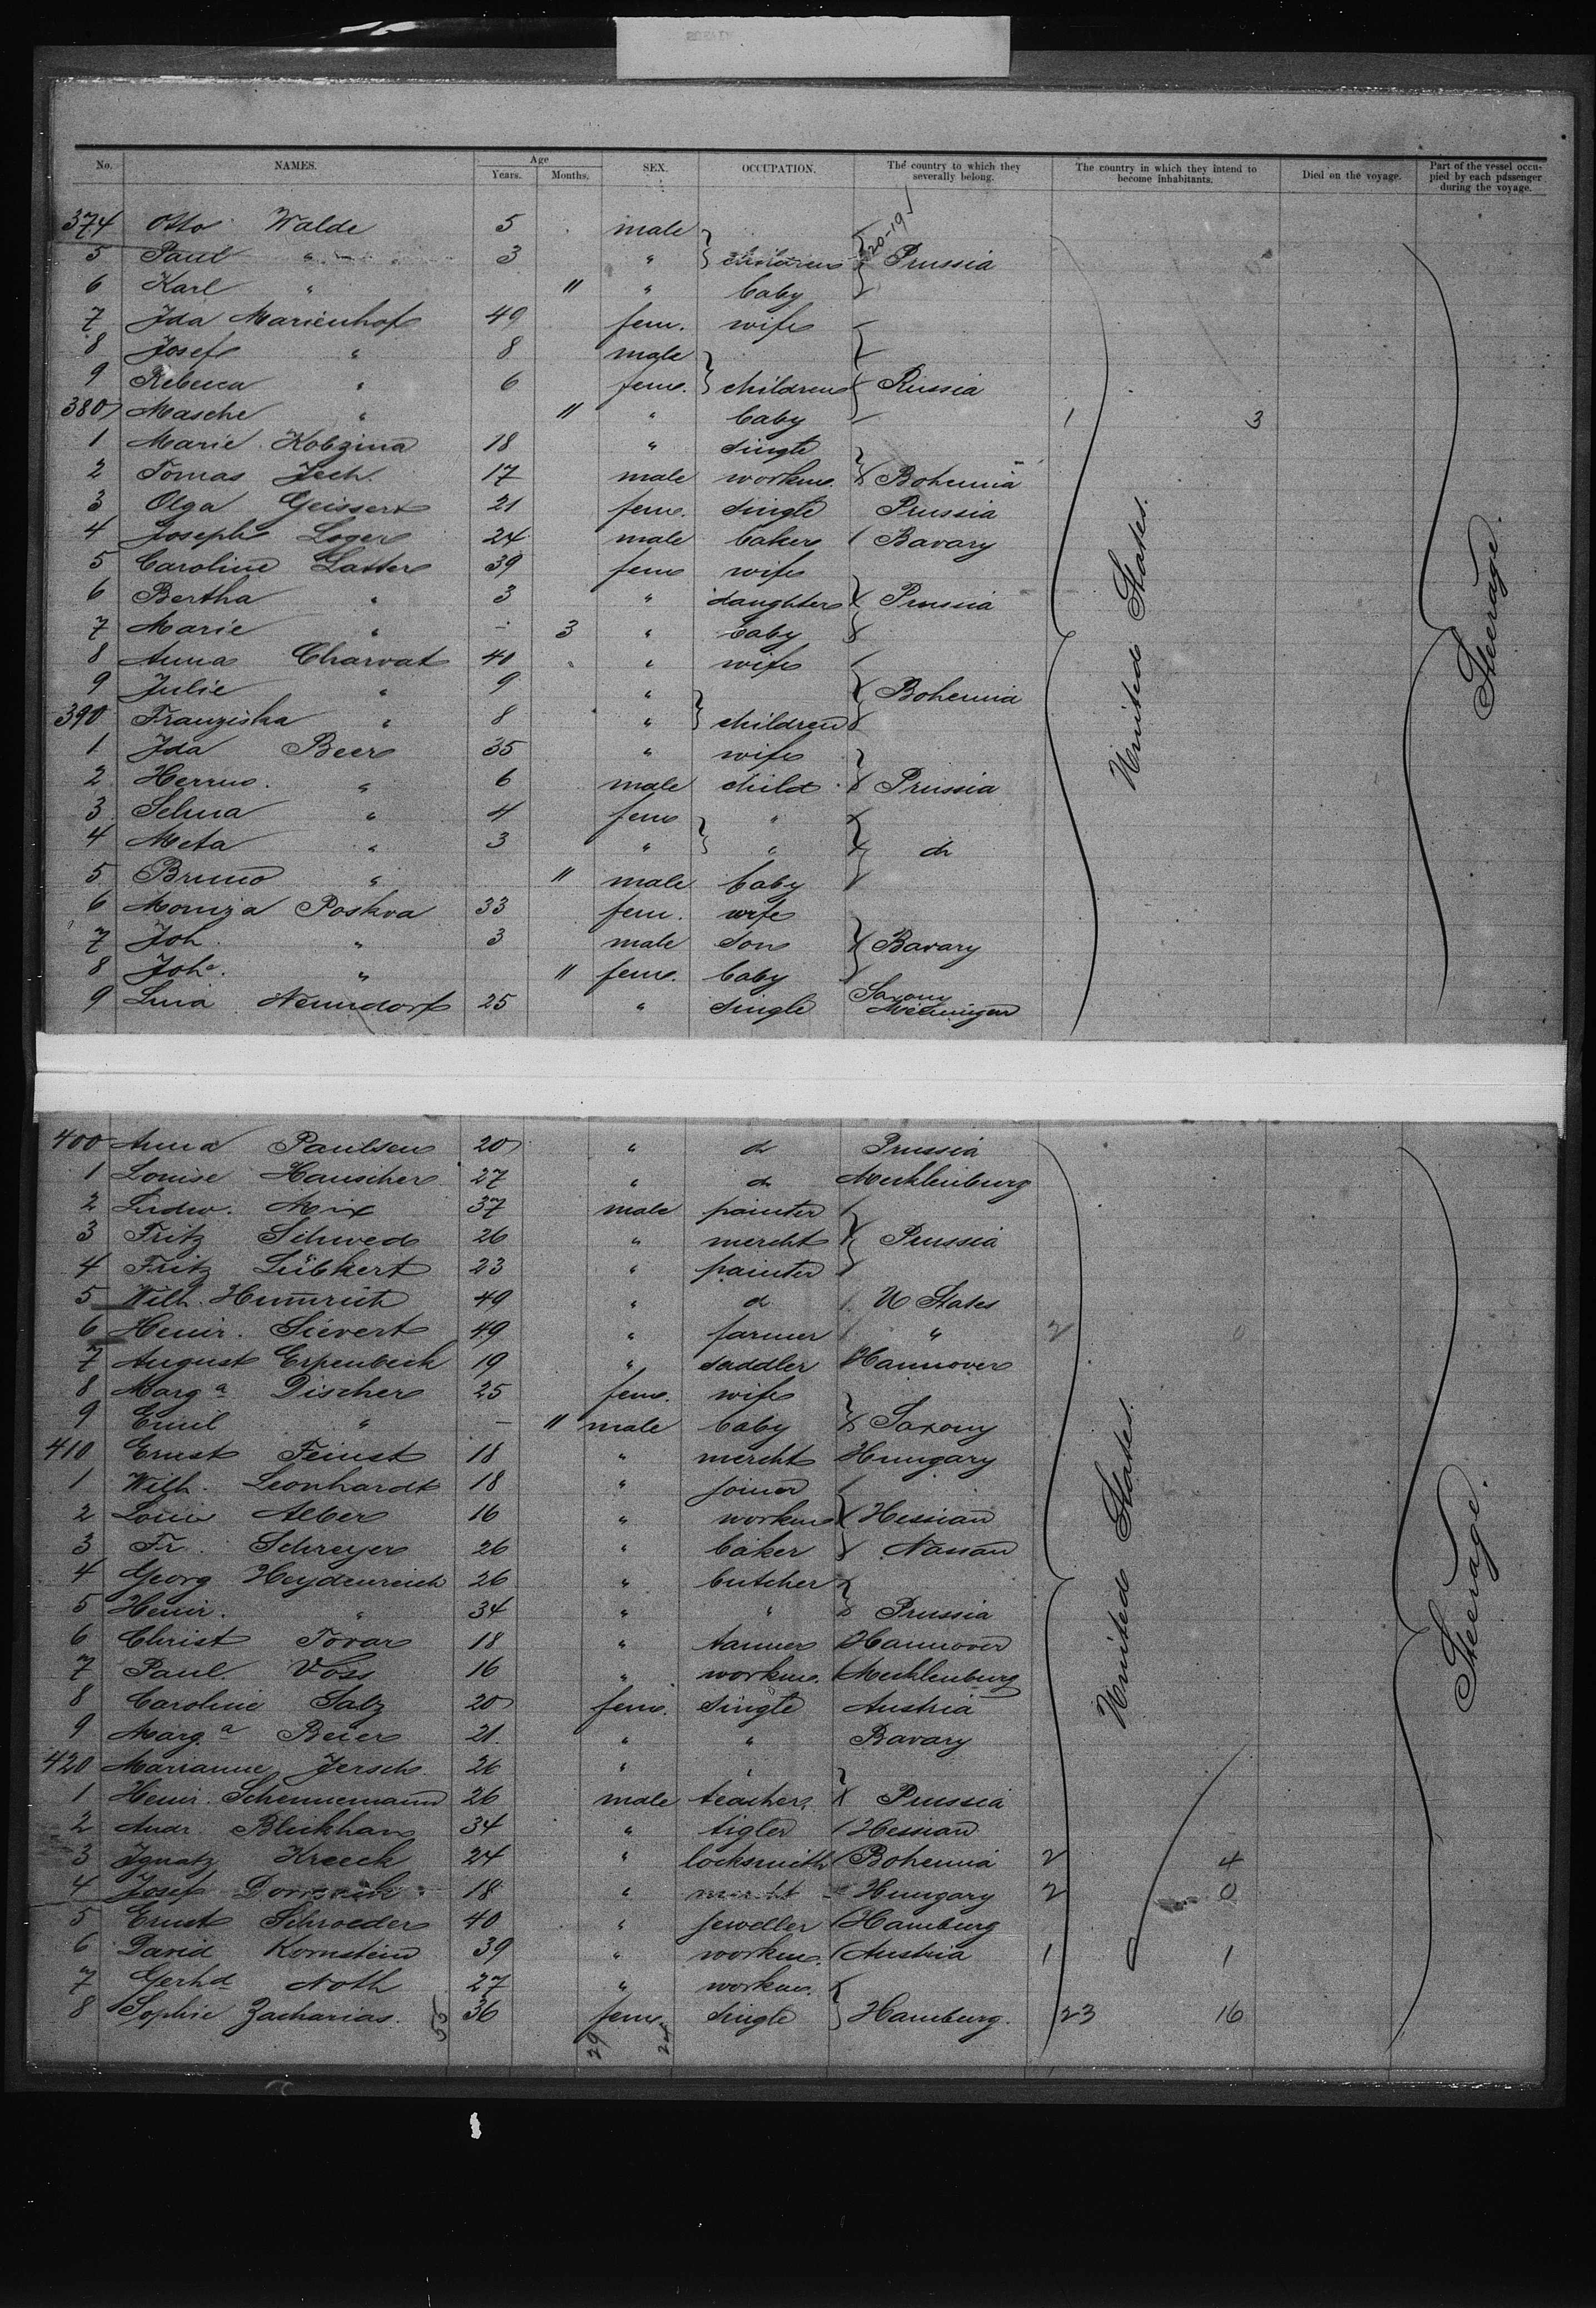 No. NAMES. Age Years. Months. SEX. OCCUPATION. The country to which they severally belong. The country in which they intend to become inhabitants. Died on the voyage. Part of the vessel occupied by each passenger during the voyage.
374 Otto Walde 5 male
5 Paul " 3 " children Prussia
6 Karl " 11 " baby
7 Ida Marienhof 49 fem. wife
8 Josef " 8 male
9 Rebecca " 6 fem. children Russia
380 Masche " 11 " baby 1 3
1 Marie Kobzina 18 " single
2 Tomas Jech 17 male workm. Bohemia
3 Olga Geissert 21 fem. single Prussia
4 Joseph Loger 24 male baker Bavary
5 Caroline Latter 39 fem wife
6 Bertha " 3 " daughter Prussia
7 Marie " - 3 " baby
8 Anna Charvat 40 " wife
9 Julie " 9 " Bohemia
390 Franziska " 8 " children
1 Ida Beer 35 " wife
2 Herm. " 6 male child Prussia
3 Selma " 4 fem "
4 Meta " 3 " " do
5 Bruno " 11 male baby
6 Poskva 33 fem. wife
7 Joh. " 3 male son Bavary
8 Joha. " 11 fem. baby
9 Lina Nenndorf 25 " single Saxony Meiningen
United States.
Steerage.
400 Anna Paulsen 20 " do Prussia
1 Louise Hauscher 27 " do Mecklenburg
2 Ludw. Mix 37 male painter
3 Fritz Schwed 26 " mercht Prussia
4 Fritz Lübkert 23 " painter
5 Wilh. 49 " do U States
6 Heinr. Sievert 49 " farmer " 2 0
7 August Erpenbeck 19 " saddler Hannover
8 Marga Discher 25 fem. wife
9 Emil " - 11 male baby Saxony
410 Ernst Feinst 18 " mercht Hungary
1 Wilh. Leonhardt 18 " joiner
2 Louis Alber 16 " workm Hessian
3 Fr. Schreyer 26 " baker Nassau
4 Georg Heydenreich 26 " butcher
5 Heinr. " 34 " " Prussia
6 Christ Tovar 18 " tanner Hannover
7 Paul Voss 16 " workm. Mecklenburg
8 Caroline Salz 20 fem. single Austria
9 Marg.a Beier 21. " " Bavary
420 Marianne Jersch 26 " "
1 Heinr. Schennemann 26 male teacher. Prussia
2 Andr. Blickhan 34 " tigler Hessian
3 Ignatz Kreech 24 " locksmith Bohemia 2 4
4 Josef 18 " mercht Hungary 2 0
5 Ernst Schroeder 40 " jeweller Hamburg
6 David Kornstein 39 " workm. Austria 1 1
7 Gerhd Noth 27 " workm.
8 Sophie Zacharias. 36 fem. single Hamburg. 23 16
55 29 24
United States.
Steerage.